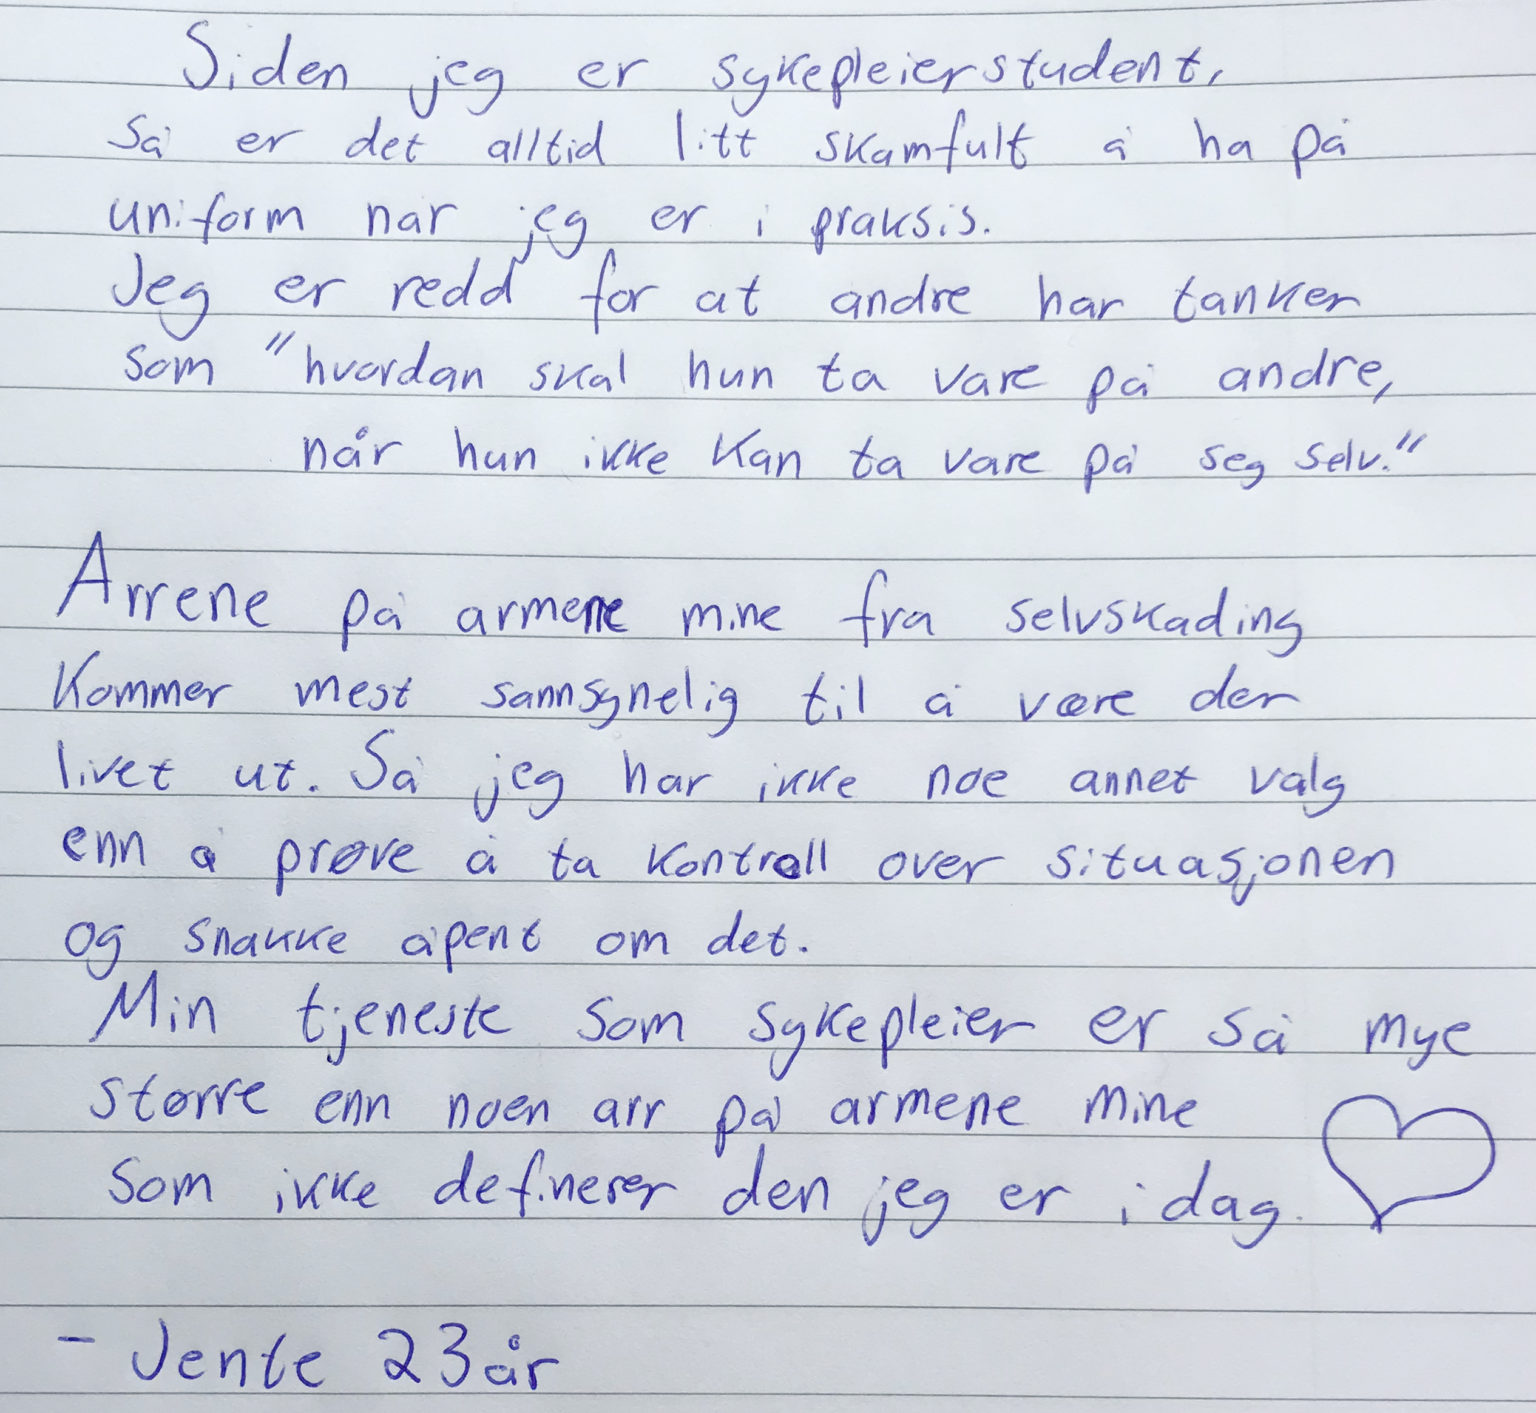 Siden jeg er sykepleierstudent,
så er det alltid litt skamfult å ha på
uniform når jeg er i praksis.
Jeg er redd for at andre har tanker
som "hvordan skal hun ta vare på andre,
når hun ikke kan ta vare på seg selv."
Arrene på armene mine fra selvskading
kommer mest sannsynelig til å være der
livet ut. Så jeg har ikke noe annet valg
enn å prøve å ta kontroll over situasjonen
og snakke åpent om det.
Min tjeneste som sykepleier er så mye
større enn noen arr på armene mine
som ikke definerer den jeg er i dag.
- Jente 23 år